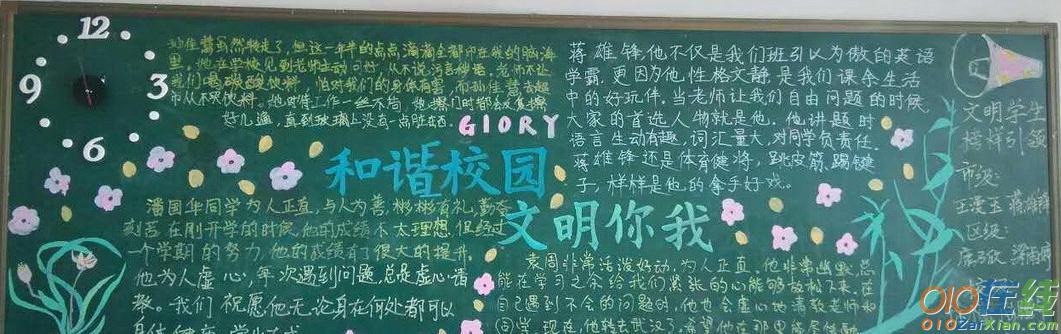 12
3
6
9
虽然转走了,但这一年半的点点滴滴全都印在我的脑海
里。她在学校见到老师主动问好,从不说污言秽语。老师不让
我们喝碳酸饮料,怕对我们的身体有害,而孙佳蕾去超
市从不买饮料。她对待工作一丝不苟,她擦门时都会反复擦
好几遍,直到玻璃上没有一点脏东西。
GlORY
和谐校园
文明你我
蒋雄锋他不仅是我们班引以为傲的英语
学霸,更因为他性格文静是我们课余生活
中的好玩伴。当老师让我们自由问题的时候
大家的首选人物就是他。他讲题时
语言生动有趣,词汇量大,对同学负责任。
蒋雄锋还是体育健将,跳皮筋,踢毽
子,样样是他的拿手好戏。
潘国华同学为人正直,与人为善,彬彬有礼,勤奋
刻苦在刚开学的时候,他的成绩不太理想,但经过
一个学期的努力,他的成绩有了很大的提升。
他为人虚心,年次遇到问题,总是虚心请
教。我们祝愿他无论身在何处都可以
袁周非常活泼好动,为人正直。他非常幽默,总
能在学习之余给我们紧张的心能够放松下来,在
自己遇到不会的问题时,他也会虚心地请教老师和
同学,现在,他转去武汉了,希望他在那里能
文明学生
榜样引领
市级:
王漫玉 蒋雄锋
区级:
010在线
010zaixian.com